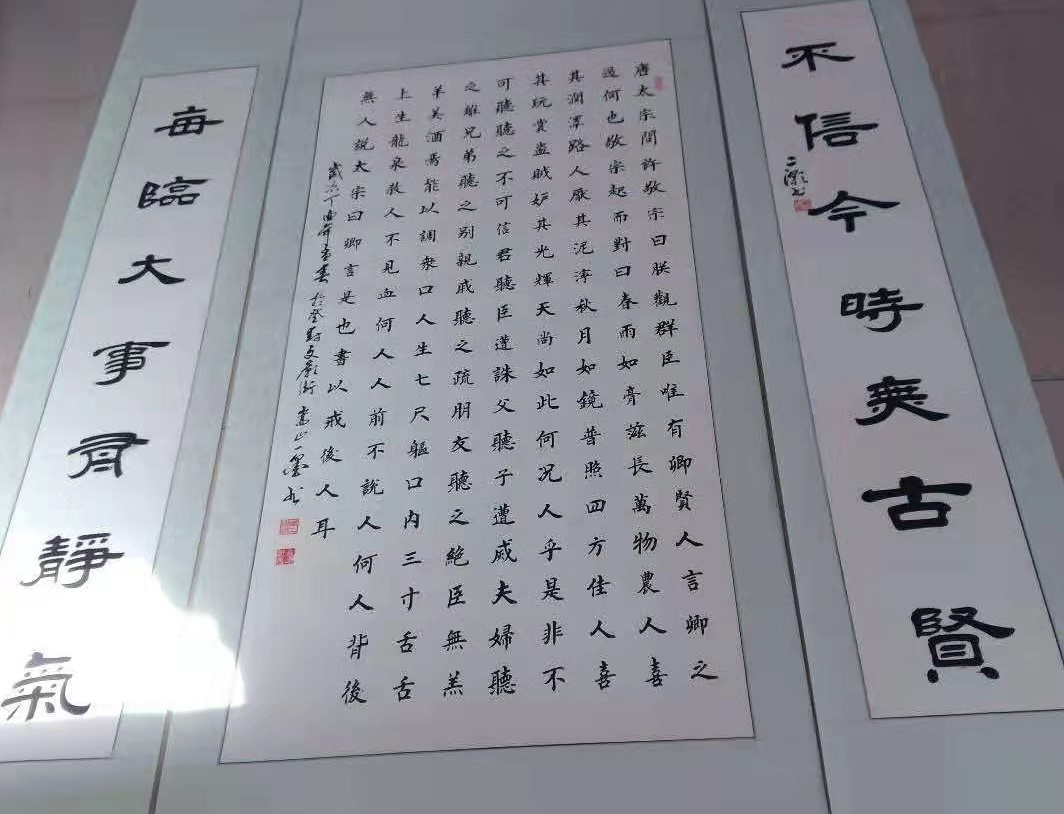 不信今時無古賢
唐太宗問許敬宗曰朕觀群臣唯有卿賢人言卿之
過何也敬宗起而對曰春雨如膏兹長萬物農人喜
其潤澤路人厭其泥濘秋月如鏡普照四方佳人喜
其玩賞盗賊妒其光輝天尚如此何況人乎是非不
可聽聽之不可信君聽臣遭誅父聽子遭戚夫婦聽
之離兄弟聽之别親戚聽之疏朋友聽之絶臣無羔
羊美酒焉能以調衆口人生七尺軀口内三寸舌舌
上生龍泉殺人不見血何人人前不說人何人背後
無人說太宗曰卿言是也書以戒後人耳
歲次丁酉年春於登封文藝街嵩山一墨书
每臨大事有靜氣